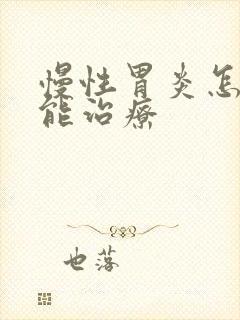 慢性胃炎怎
能治疗
也落